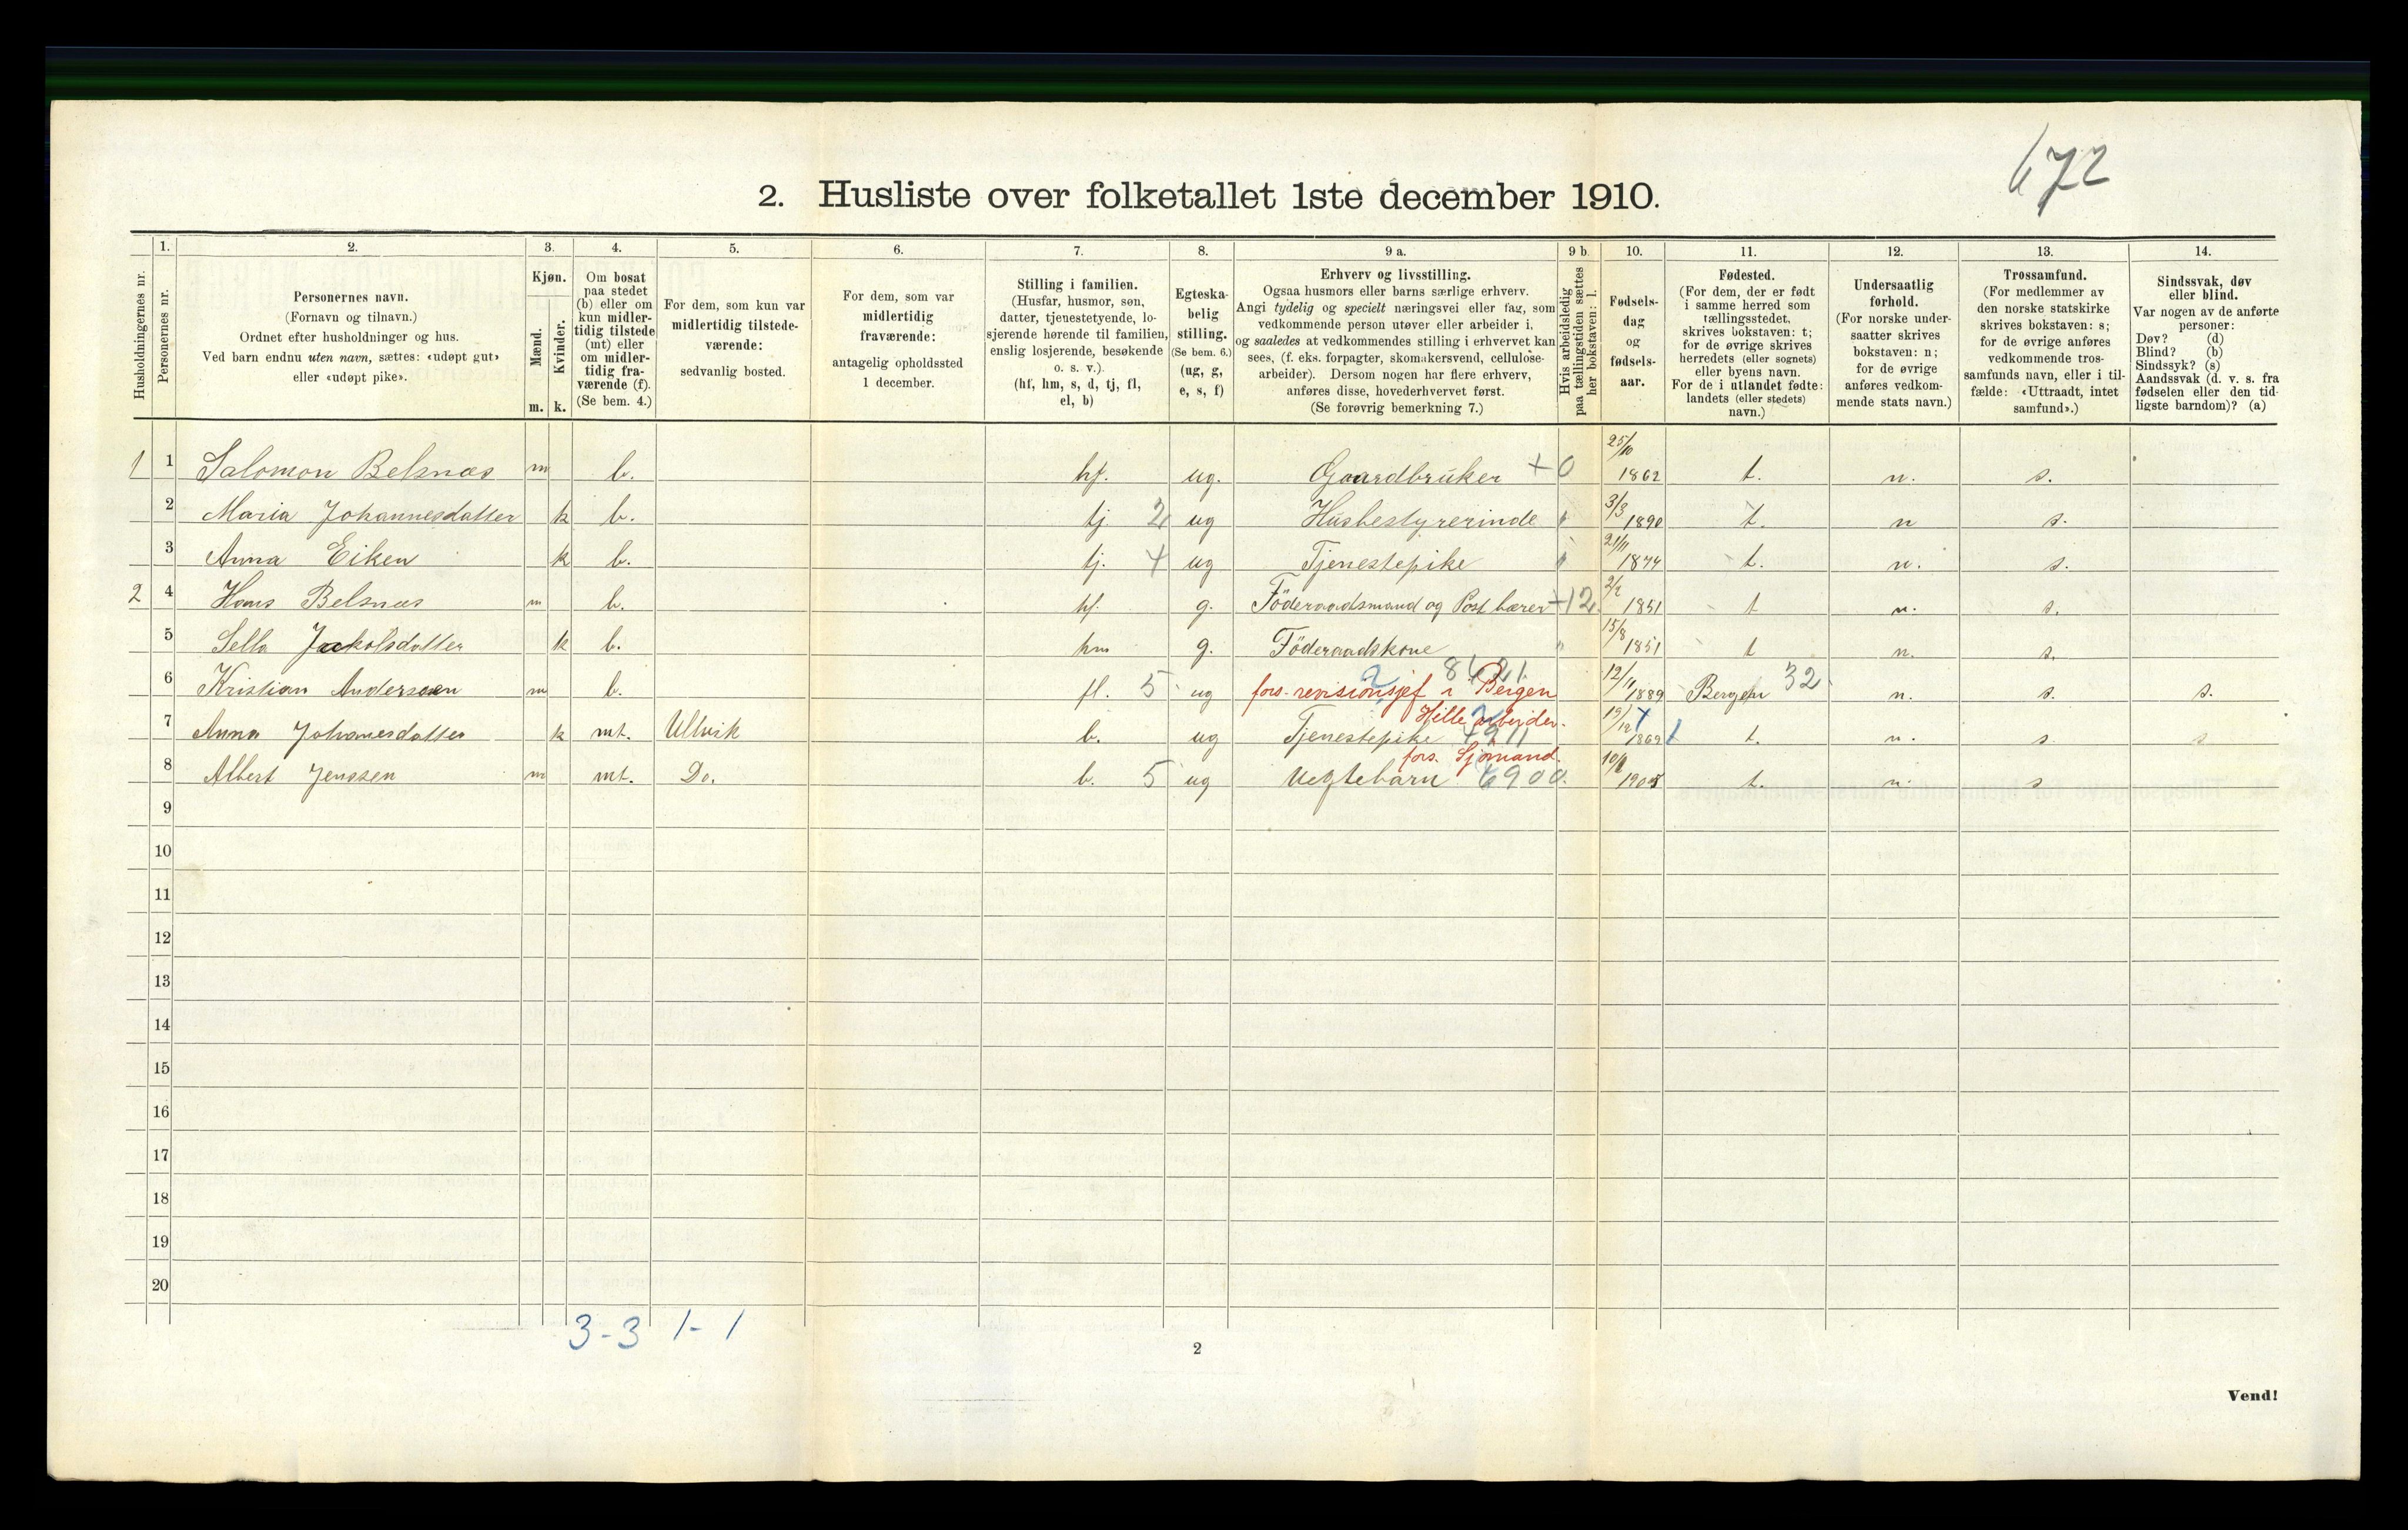 672
2. Husliste over folketallet 1ste december 1910.
Husholdningernes nr.
1.
Personernes nr.
2.
Personernes navn.
(Fornavn og tilnavn.)
Ordnet efter husholdninger og hus.
Ved barn endnu uten navn, sættes: «udøpt gut»
eller «udøpt pike».
3.
Kjøn.
Mænd.
Kvinder.
m. k.
4.
Om bosat
paa stedet
(b) eller om
kun midler-
tidig tilstede
(mt) eller
om midler-
tidig fra-
værende (f).
(Se bem. 4.)
5.
For dem, som kun var
midlertidig tilstede-
værende:
sedvanlig bosted.
6.
For dem, som var
midlertidig
fraværende:
antagelig opholdssted
1 december.
7.
Stilling i familien.
(Husfar, husmor, søn,
datter, tjenestetyende, lo-
sjerende hørende til familien,
enslig losjerende, besøkende
o. s. v.).
(hf, hm, s, d, tj, fl,
el, b)
8.
Egteska-
belig
stilling.
(Se bem. 6.)
(ug, g,
e, s, f)
9 a.
Erhverv og livsstilling.
Ogsaa husmors eller barns særlige erhverv.
Angi tydelig og specielt næringsvei eller fag, som
vedkommende person utøver eller arbeider i,
og saaledes at vedkommendes stilling i erhvervet kan
sees, (f. eks. forpagter, skomakersvend, cellulose-
arbeider). Dersom nogen har flere erhverv,
anføres disse, hovederhvervet først.
(Se forøvrig bemerkning 7.)
9 b.
Hvis arbeidsledig
paa tællingstiden sættes
her bokstaven: l.
10.
Fødsels-
dag
og
fødsels-
aar.
11.
Fødested.
(For dem, der er født
i samme herred som
tællingsstedet,
skrives bokstaven: t;
for de øvrige skrives
herredets (eller sognets)
eller byens navn.
For de i utlandet fødte:
landets (eller stedets)
navn.)
12.
Undersaatlig
forhold.
(For norske under-
saatter skrives
bokstaven: n;
for de øvrige
anføres vedkom-
mende stats navn.)
13.
Trossamfund.
(For medlemmer av
den norske statskirke
skrives bokstaven: s;
for de øvrige anføres
vedkommende tros-
samfunds navn, eller i til-
fælde: «Uttraadt, intet
samfund».)
14.
Sindssvak, døv
eller blind.
Var nogen av de anførte
personer:
Døv? (d)
Blind? (b)
Sindssyk? (s)
Aandssvak (d. v. s. fra
fødselen eller den tid-
ligste barndom)? (a)
1 1 Salomon Belsnæs m b. hf. ug. Gaardbruker +0 25/10 1862 t. n. s.
2 Maria Johannesdatter k b. tj. 2 ug Husbestyrerinde " 3/3 1890 t. n s.
3 Anna Eiken k b. tj. 4 ug Tjenestepike " 21/11 1874 t. n. s.
2 4 Hans Belsnæs m b. hf. g. Föderaadsmand og Postbærer +12. 2/2 1851 t n. s.
5 Sella Jakobsdatter k b. hm g. Föderaadskone " 15/8 1851 t n. s.
6 Kristian Anderssen m b. fl. 5 ug fors. revisionsjef i Bergen 12/11 1889 Bergen 32. n. s. s.
7 Anna Johannesdatter k mt. Ullvik b. ug Tjenestepike 19/12 1869 t. n. s. s
8 Albert Jenssen m mt. Do. b. 5 ug fors. Sjömand. Vegtebarn 6900. 1905 t. n. s
9
10
11
12
13
14
15
16
17
18
19
20
3-3 1-1
2
Vend!